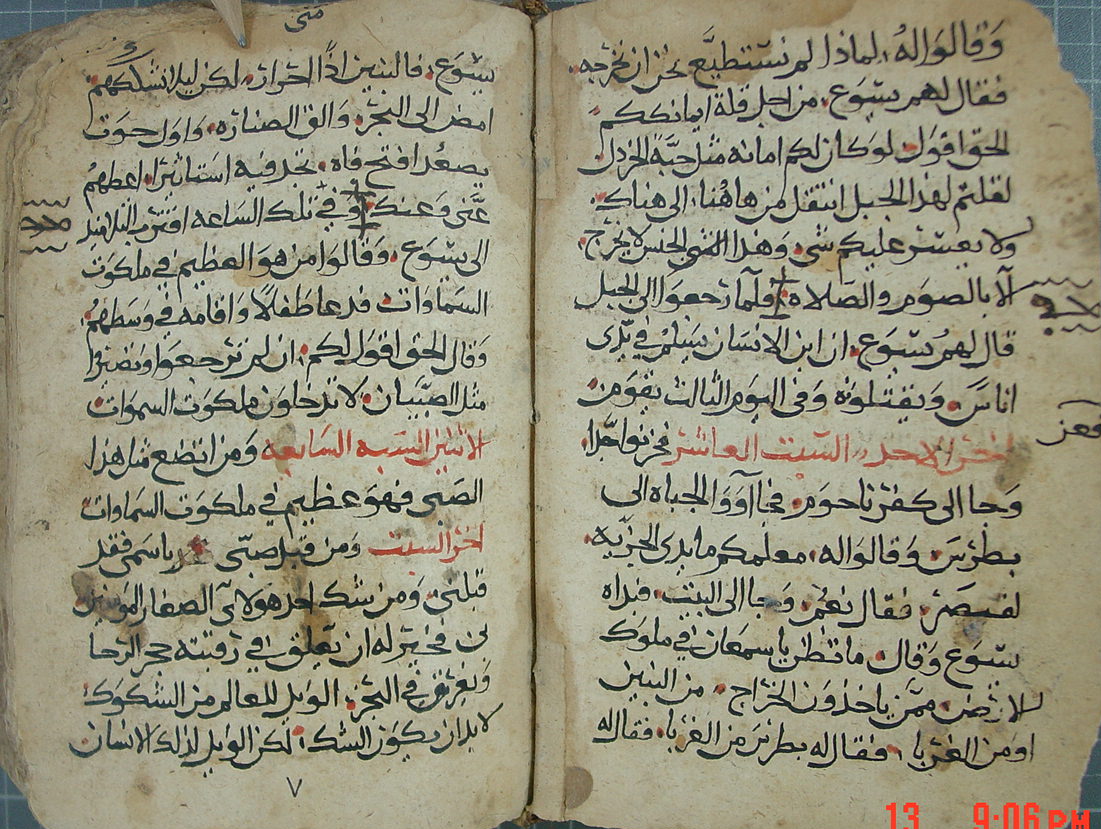 وقالوا له، لماذا لم نستطيع نحن ان نخرجه.
فقال لهم يسوع. من اجل قلة ايمانكم
الحق اقول. لو كان لكم امانه مثل حبة الخردل.
لقلتم لهذا الجبل انتقل من هاهنا. الى هناك.
ولا يعسر عليكم شى. وهذا الجنس لا يخرج.
الا بالصوم والصلاه. فلما رجعوا الى الجبل
قال لهم يسوع. ان ابن الانسان يسلم فى يدى
اناس. ويقتلونه وفى اليوم الثالث يقوم.
اخر الاحد. السبت العاشر فحزنوا جدا.
وجا الى كفرناحوم. فجااوو الجباه الى
بطرس. وقالوا له. معلمكم ما يدى الجزيه.
لقيصر. فقال نعم. وجا الى البيت. فبداه
يسوع وقال. ما تظن يا سمعان فى ملوك
الارض. ممن ياخذون الخراج. من البنين
او من الغربا. فقال له بطرس من الغربا. فقال له
فعز
متى
يسوع. فالبنين اذًا احرار. لكن ليلا نشككهم.
امض الى البحر. والق الصناره. واول حوت
يصعد افتح فاه. تجد فيه استاتيرا. اعطهم
عنى وعنك. وفى تلك الساعه اقترب التلاميذ
الى يسوع. وقالوا من هو العظيم فى ملكوت
السماوات. فدعا طفلًا واقامه فى وسطهم.
وقال الحق اقول لكم. ان لم ترجعوا وتصيروا
مثل الصبيان. لا تدخلون ملكوت السموات
الاثنين السبه السابعه. ومن اتضع مثل هذا
الصبى فهو عظيم فى ملكوت السماوات
اخر السبت ومن قبل صبى باسمى فقد
قبلنى. ومن شكك احد هولاى الصغار المومنين
بى فخير له ان تعلق فى رقبته حجر الرحا
ويغرق فى البحر. الويل للعالم من الشكوك
لا بد ان يكون الشك. لكن الويل لذلك الانسان
٧
13 9:06 PM